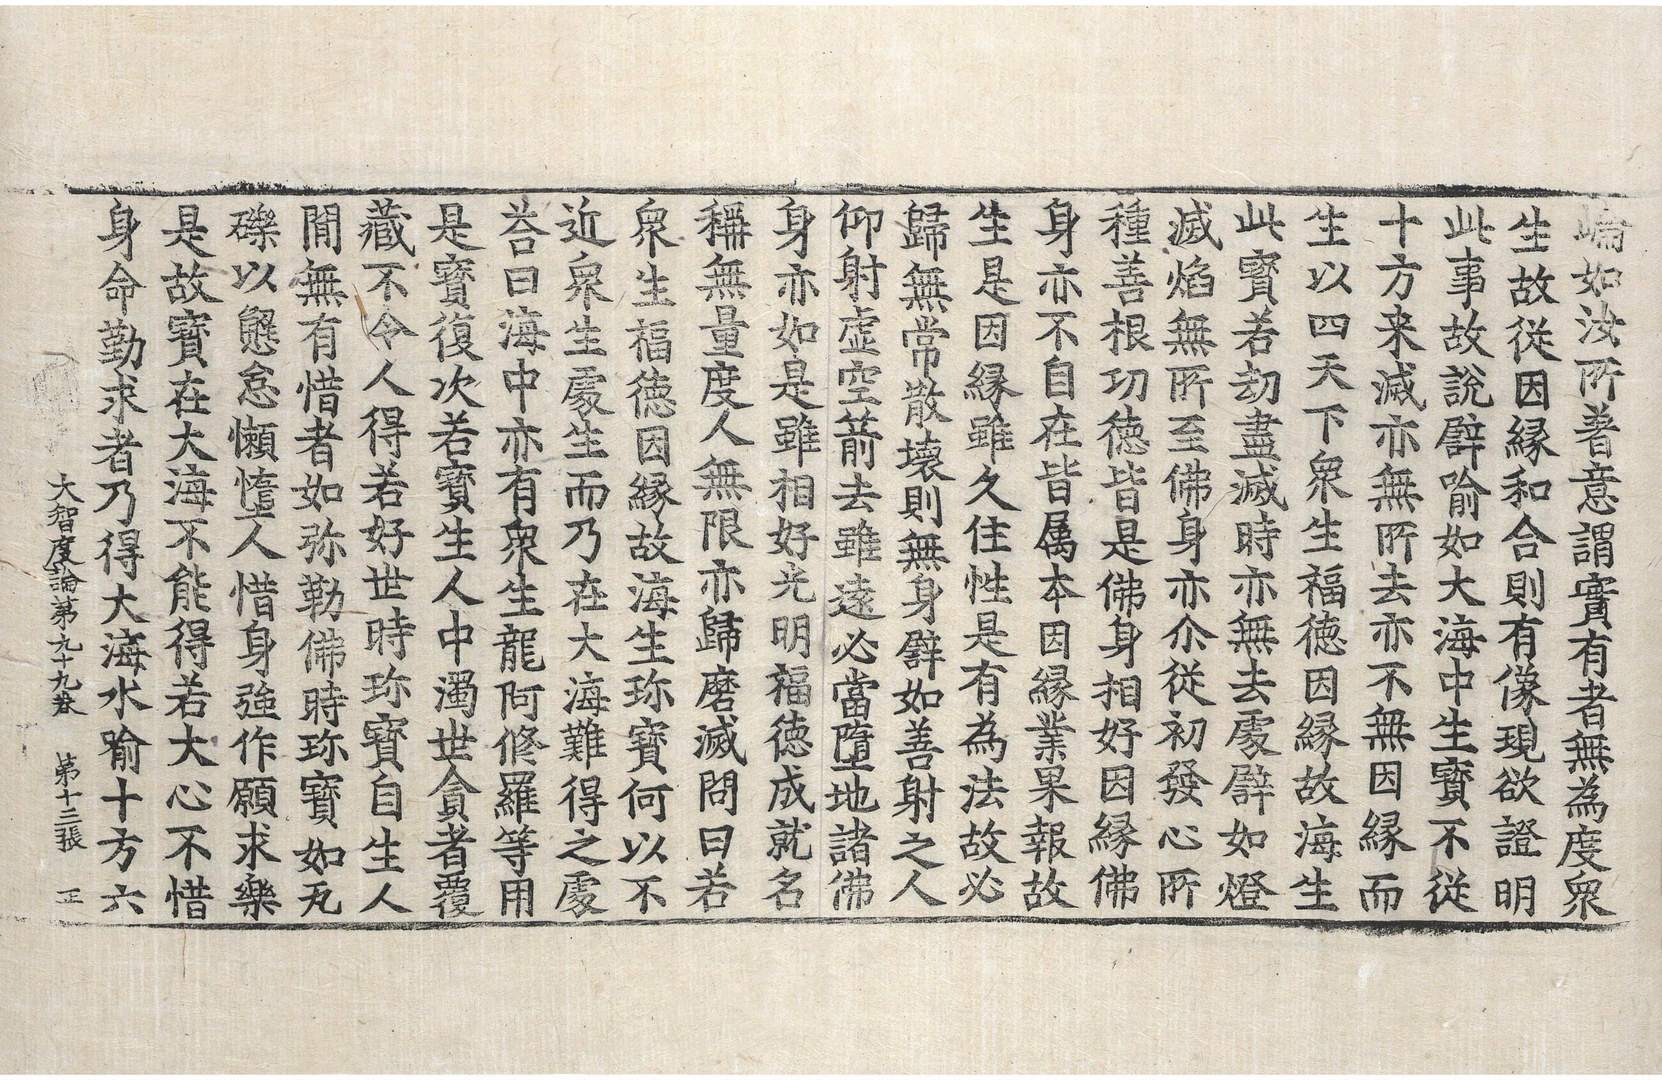 端如汝所著意謂實有者無為度衆
生故從因縁和合則有像現欲證明
此事故說譬喻如大海中生寶不從
十方来滅亦無所去亦不無因縁而
生以四天下衆生福德因縁故海生
此寶若劫盡滅時亦無去處譬如燈
滅焰無所至佛身亦尒從初發心所
種善根功德皆是佛身相好因縁佛
身亦不自在皆属本因縁業果報故
生是因縁雖久住性是有為法故必
歸無常散壞則無身譬如善射之人
仰射虛空箭去雖遠必當墮地諸佛
身亦如是雖相好光明福德成就名
稱無量度人無限亦歸磨滅問曰若
衆生福德因縁故海生珎寶何以不
近衆生處生而乃在大海難得之處
荅曰海中亦有衆生龍阿修羅等用
是寶復次若寶生人中濁世貪者覆
藏不令人得若好世時珎寶自生人
閒無有惜者如弥勒佛時珎寶如瓦
礫以懈怠懶墯人惜身強作願求樂
是故寶在大海不能得若大心不惜
身命勤求者乃得大海水喻十方六
大智度論第九十九卷 第十三張 正